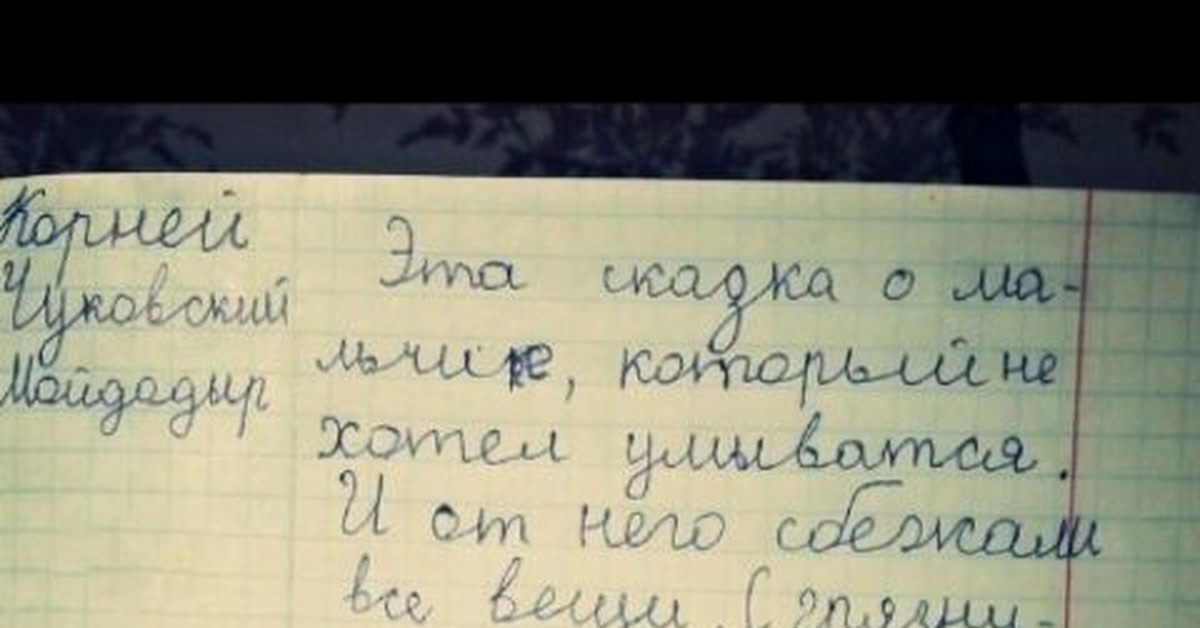 Корней
Чуковский
Мойдодыр
Эта скадка о ма-
льчике, который не
хотел умыватся.
И от него сбежали
все вещи. (грязну-